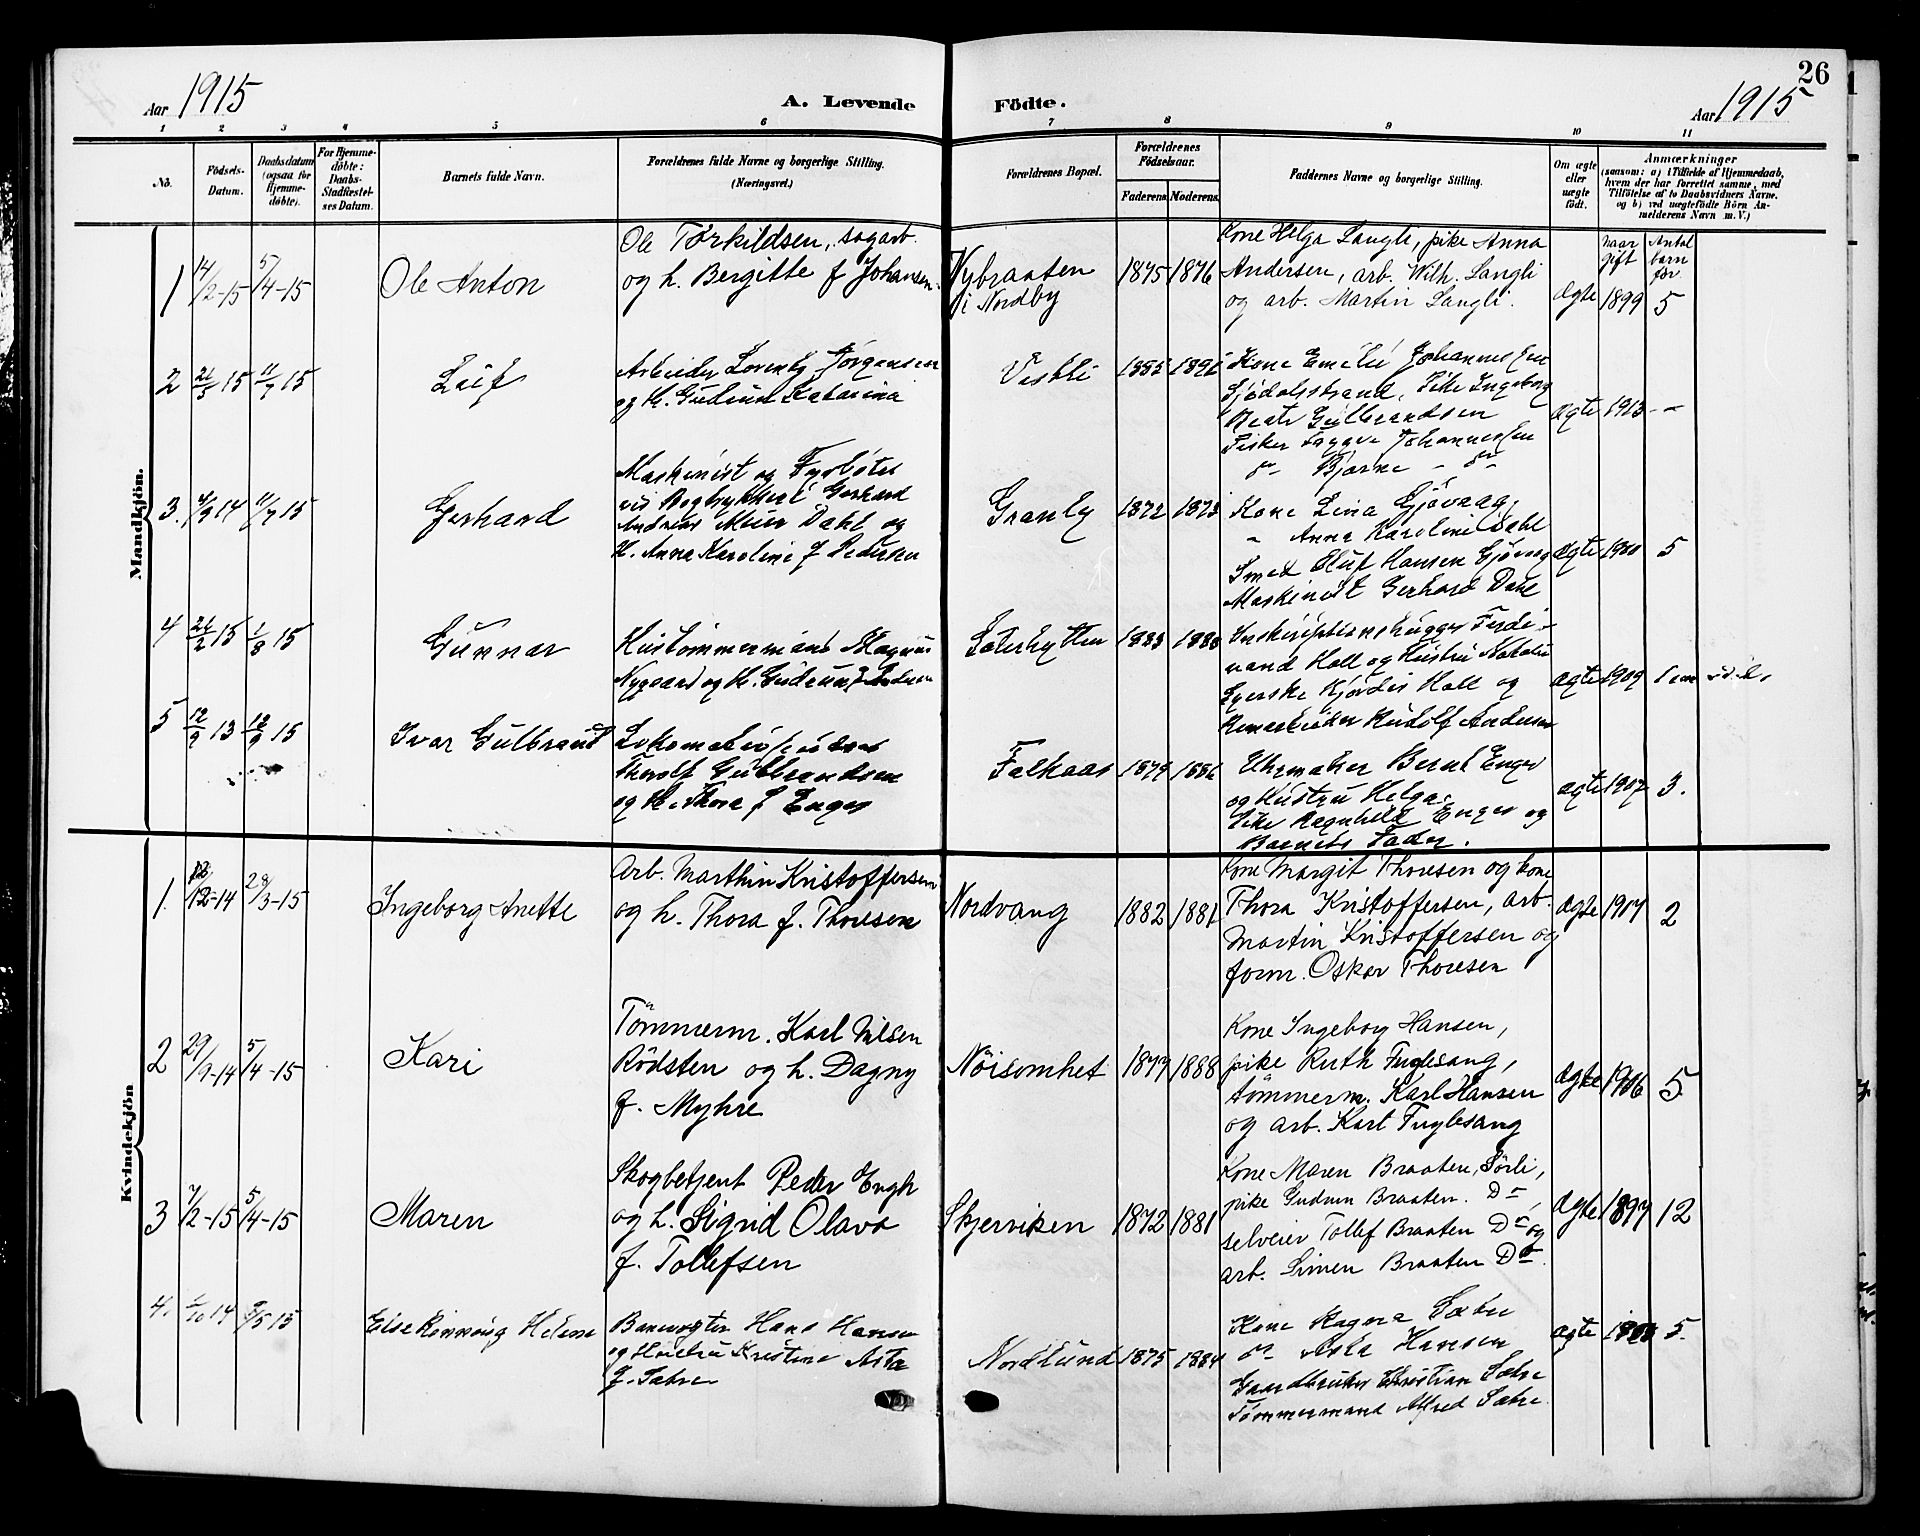 26
Aar 1915
A. Levende Födte.
Aar 1915
1 2 3 4 5 6 7 8 9 10 11
No.
Födsels-
Datum.
Daabsdatum
(ogsaa for
Hjemme-
døbte).
For Hjemme-
døbte:
Daabs-
Stadfæstel-
ses Datum.
Barnets fulde Navn.
Forældrenes fulde Navne og borgerlige Stilling.
(Næringsvei.)
Forældrenes Bopæl.
Forældrenes
Fødselsaar.
Faderens Moderens
Faddernes Navne og borgerlige Stilling.
Om ægte
eller
uægte
født.
Anmærkninger
(saasom: a) i Tilfælde af Hjemmedaab,
hvem der har forrettet samme, med
Tilföielse af to Daabsvidners Navne.
og b) ved uægtefödte Börn An-
melderens Navn m. V.)
naar
gift
Antal
barn
før
Mandkjön.
1 14/2-15 5/4-15 Ole Anton
Ole Torkildsen, sagarb.
og h. Bergitte f Johansen.
Nybraaten
i Nordby
1875 1876
Kone Helga Langli, pike Anna
Andersen, arb. Wilh. Langli
og arb. Martin Langli.
ægte 1899 5
2 15 11/7 15 Leif
Arbeider Lorentz Jørgensen
og H. Gudrun Katarina
Vestli
Kone Emelie Johannessen
Sjødalsstrand, Pike Ingeborg
Beate Gulbrandsen
Fisker Johannessen
do Bjarne - do
ægte 1913 - -
3. 4/9 14 11/7 15 Gerhard
Maskinist og
Gerhard
Andreas Dahl og
H. Anna Karoline f Pedersen
Granly
1872 1873
Kone Lina Gjøvaag
" Anna Karoline Dahl
Smed Oluf Hansen Gjøvaag
Maskinist Gerhard Dahl
ægte 1900 5
4 26/2 15 1/8 15 Gunnar
Hustømmermand Magnus
Nygaard og H. Gudrun f Andersen
Sæterhytten
1883 1888
Ferdi-
nand Holl og Hustru
Hjørdis Holl og
Rudolf Andersen
ægte 1909 1
5 12/9 13 12/9 15 Ivar Gulbrand
Thorolf Gulbrandsen
og H. Thora f Enger
Falkaas
1879 1886
Uhrmaker Bernt Enger
og Hustru Helga.
Pike Ragnhild Enger og
Barnets Fader.
ægte 1907 3.
Kvindekjön
1. 12-14 28/3-15 Ingeborg Anette
Arb. Marthin Kristoffersen
og h. Thora f. Thoresen
Nordvang
1882 1881
Kone Margit Thoresen og kone
Thora Kristoffersen, arb.
Martin Kristoffersen og
form. Oskar Thoresen
ægte 1907 2
2 29/9-14 5/4-15 Kari
Tömmerm. Karl Nilsen
Rödsten og h. Dagny
f. Myhre
Nöisomhet
1877 1888
Kone Ingeborg Hansen,
pike Ruth Fuglesang,
tömmerm. Karl Hansen
og arb. Karl Fuglesang
ægte 1906 5
3 7/2-15 5/4-15 Maren
Skogbetjent Peder Engh
og h. Sigrid Olava
f. Tollefsen
Skjerviken
1872 1881
Kone Maren Braaten, Sörli,
pike Gudrun Braaten. Do,
selveier Tollef Braaten Do og
arb. Simen Braaten Do.
ægte 1897 12
4. 14 15 Else Rønnaug Helene
Banevogter Hans Hansen
og Hustru Kristine Asta
f. Sætre
Nordlund
1875 1884
Kone Ragna Sætre
do Asta Hansen
Gaardbruker Christian Sætre
Tømmermand Alfred Sætre
ægte 5.